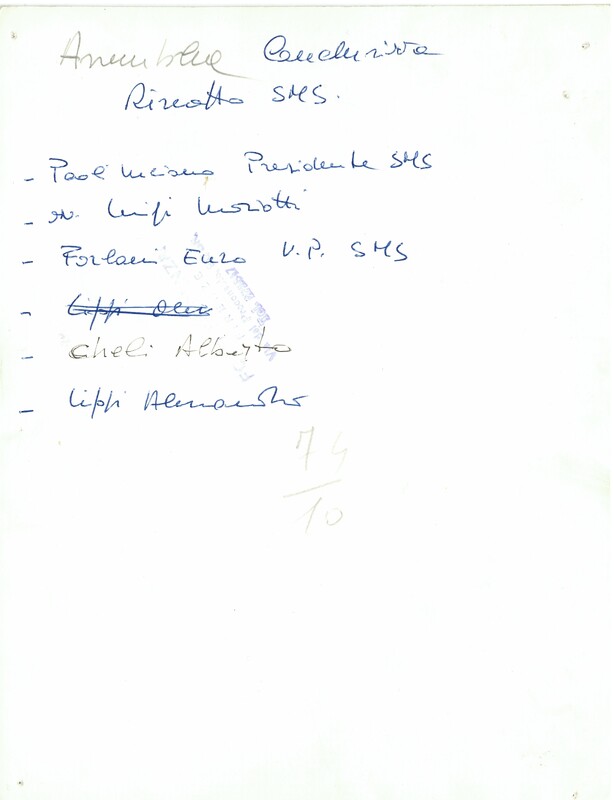 Assemblea Conclusiva
Riscatto SMS.
- Paoli Luciano Presidente SMS
- Luigi Mariotti
- Forlani Enzo V.P. SMS
- Lippi
- Cheli Alberto
- Lippi Alessandro
74
10